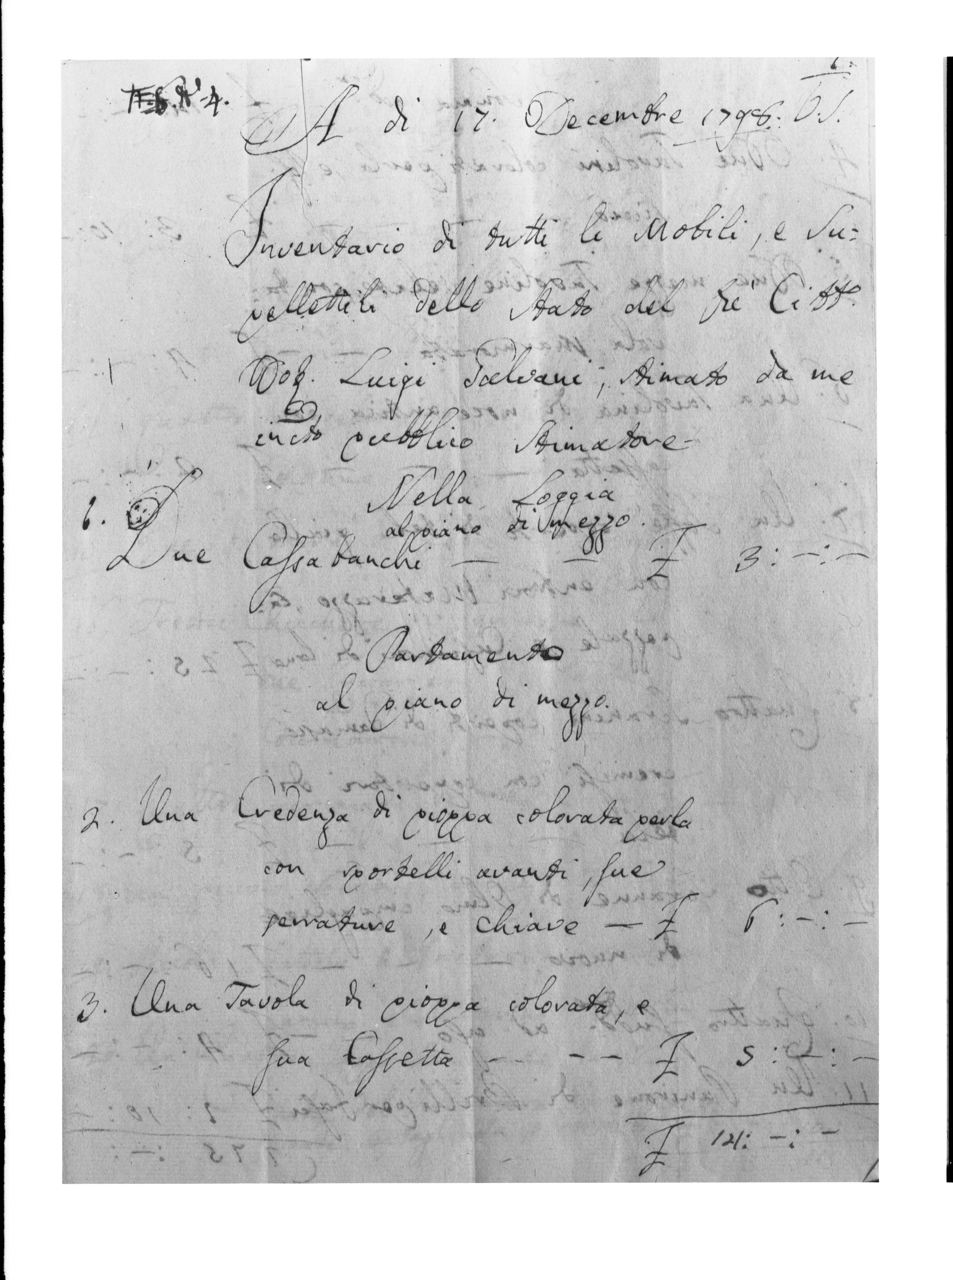 1.
N. 4.
A di 17. Decembre 1798. V. S.
Inventario di tutti li Mobili, e Su=
pellettili dello Stato del fù Citt.o
Dog. Luigi Galvani, stimato da me
infto pubblico Stimatore-
Nella Loggia
al piano di mezzo.
1. Due Cassabanchi — — £ 3: –:–
Partamento
al piano di mezzo.
2. Una Credenza di pioppa colorata perla
con sportelli avanti, sue
serrature, e chiave — £ 6: –:–
3. Una Tavola di pioppa colorata, e
sua Cassetta — – – £ 5: –:–
£ 14: –:–